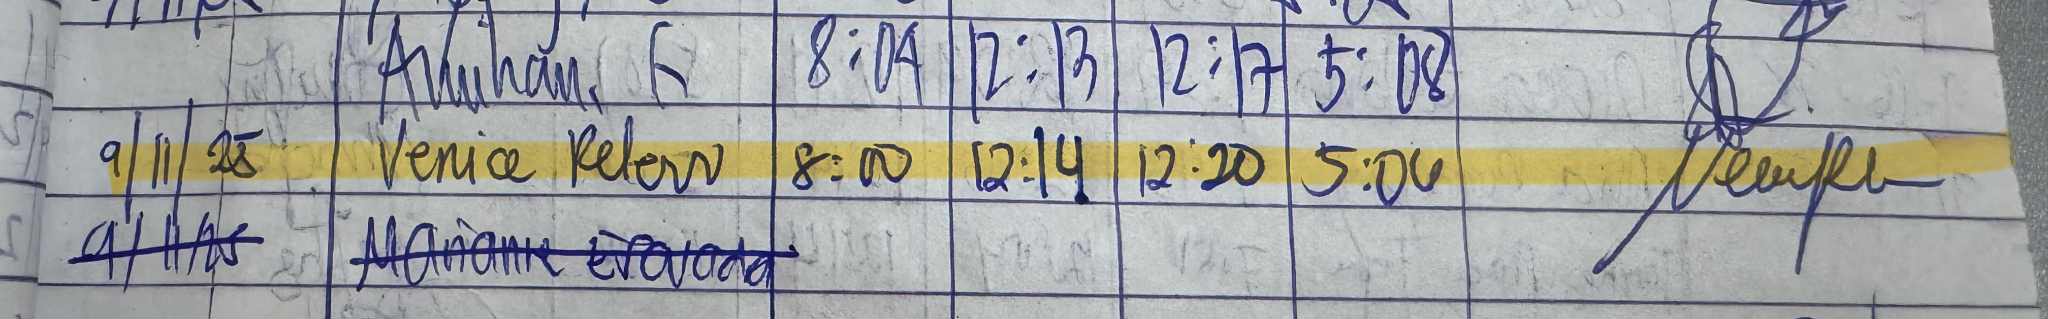 8:04 12:13 12:17 5:08
9/11/25 Venice 8:00 12:14 12:20 5:06
9/11/25 Marianne